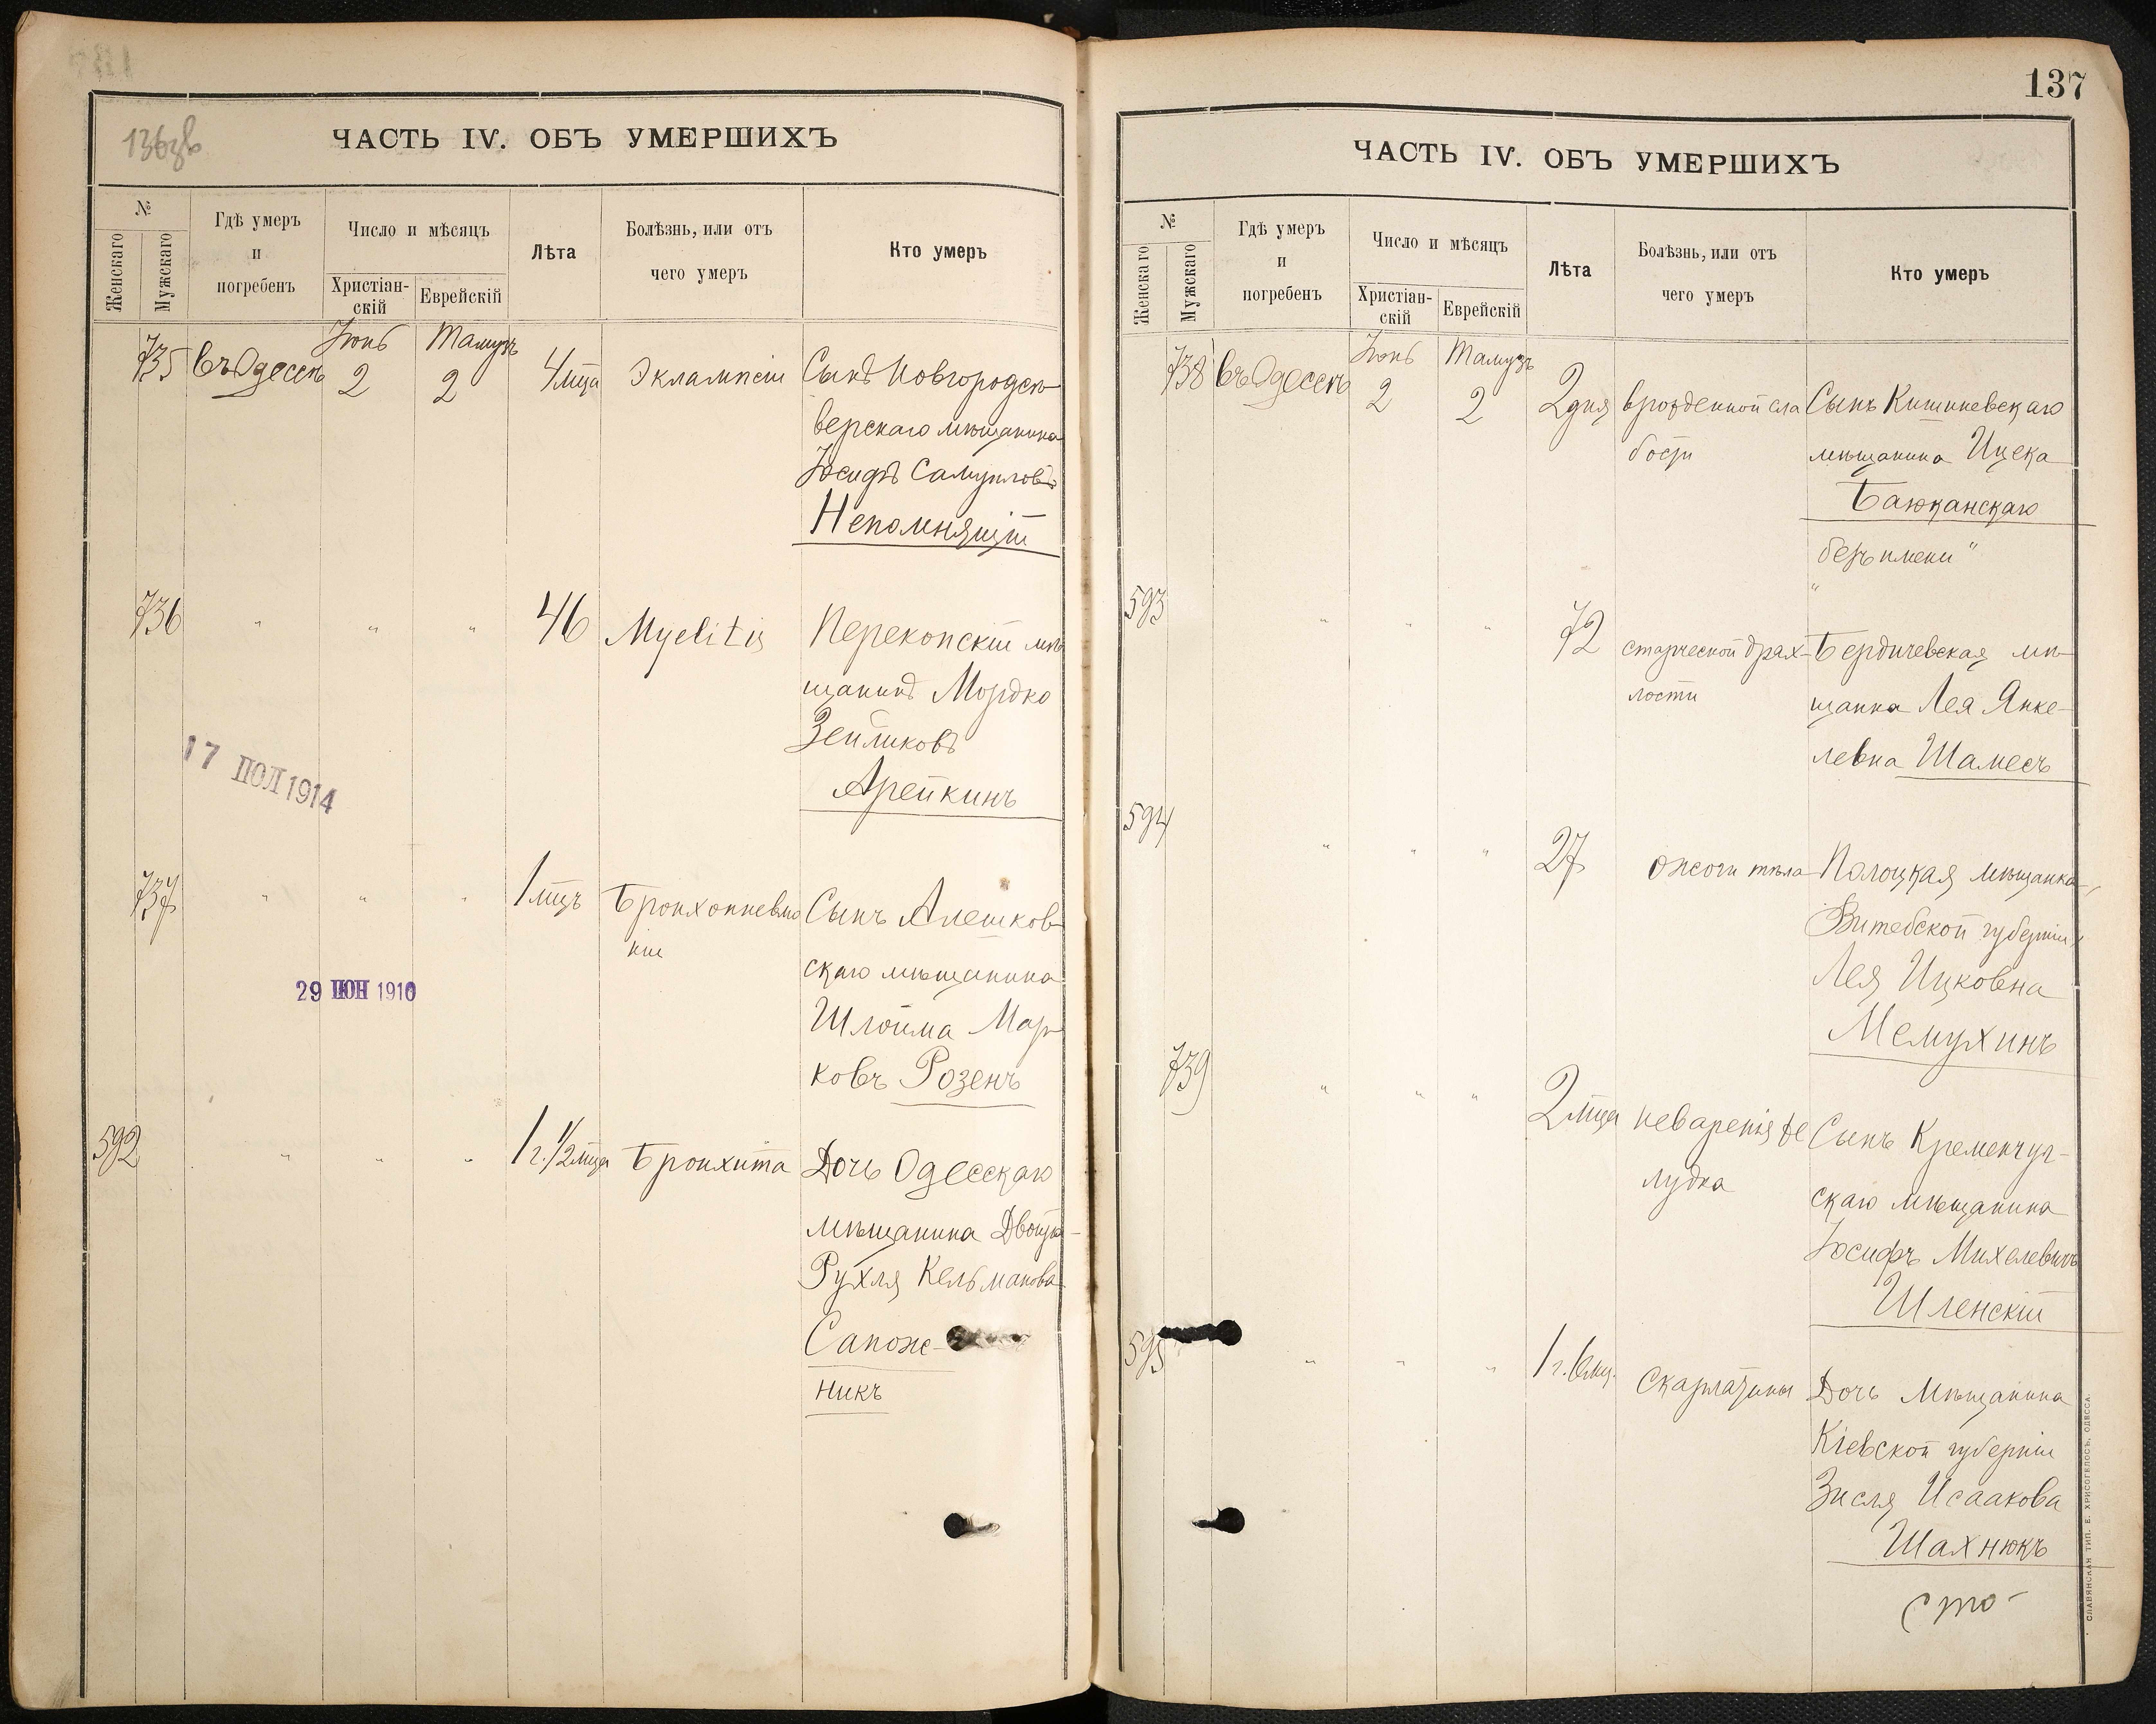 136зв
ЧАСТЬ IV. ОБЪ УМЕРШИХЪ
№
Женскаго
Мужскаго
Гдѣ умеръ
и
погребенъ
Число и мѣсяцъ
Христіан-
скій
Еврейскій
Лѣта
Болѣзнь, или отъ
чего умеръ
Кто умеръ
Іюнь Тамузъ
735 въ Одессѣ 2 2 4 мца Эклампсіи Сынъ Новгородсѣ-
верскаго мѣщанина
Іосифъ Самуиловъ
Непомнящій
736 " " " 46 Myelitis Перекопскій мѣ
щанинъ Мордко
Зейликовъ
Арейкинъ
17 ІЮЛ 1914
737 " " " 1 мцъ Бронхопневмо Сынъ Алешков-
ніи
скаго мѣщанина
Шлойма Мар-
ковъ Розенъ
29 ІЮН 1910
592 " " " 1 г. 1/2 мца Бронхита Дочь Одесскаго
мѣщанина Двойра-
Рухля Кельманова
Сапож-
никъ
137
ЧАСТЬ IV. ОБЪ УМЕРШИХЪ
№
Женскаго
Мужскаго
Гдѣ умеръ
и
погребенъ
Число и мѣсяцъ
Христіан-
скій
Еврейскій
Лѣта
Болѣзнь, или отъ
чего умеръ
Кто умеръ
Іюнь Тамузъ
738 въ Одессѣ 2 2 2 дня врожденной сла Сынъ Кишиневскаго
бости мѣщанина Ицека
Баюканскаго
безъ имени"
"
593 " " " 72 старческой драх- Бердичевская мѣ-
лости щанка Лея Янке-
левна Шамесъ
594 " " " 27 ожоги тѣла Полоцкая мѣщанка,
Витебской губерніи,
Лея Ицковна
Мемухинъ
739 " " " 2 мца неваренія же Сынъ Кременчуг-
лудка скаго мѣщанина
Іосифъ Михелевичъ
Шленскій
595 " " " 1 г. 6 мц. Скарлатины Дочь мѣщанина
Кіевской губерніи
Зисля Исаакова
Шахнюкъ
сто-
СЛАВЯНСКАЯ ТИП. Е. ХРИСОГЕЛОСЪ, ОДЕССА.